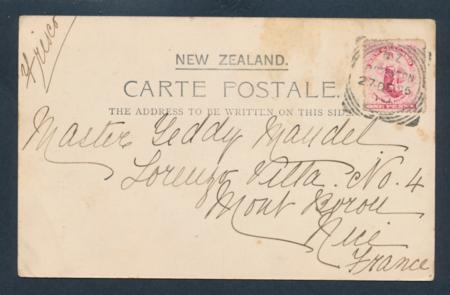 Frisco
NEW ZEALAND.
CARTE POSTALE.
THE ADDRESS TO BE WRITTEN ON THIS SIDE
Master Teddy Mandel
Lorenzo Villa. No. 4
Mont Boron
Nice
France